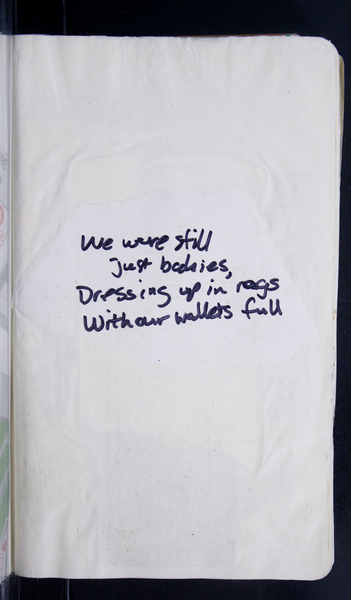 We were still
Just bodies,
Dressing up in rags
With our wallets full